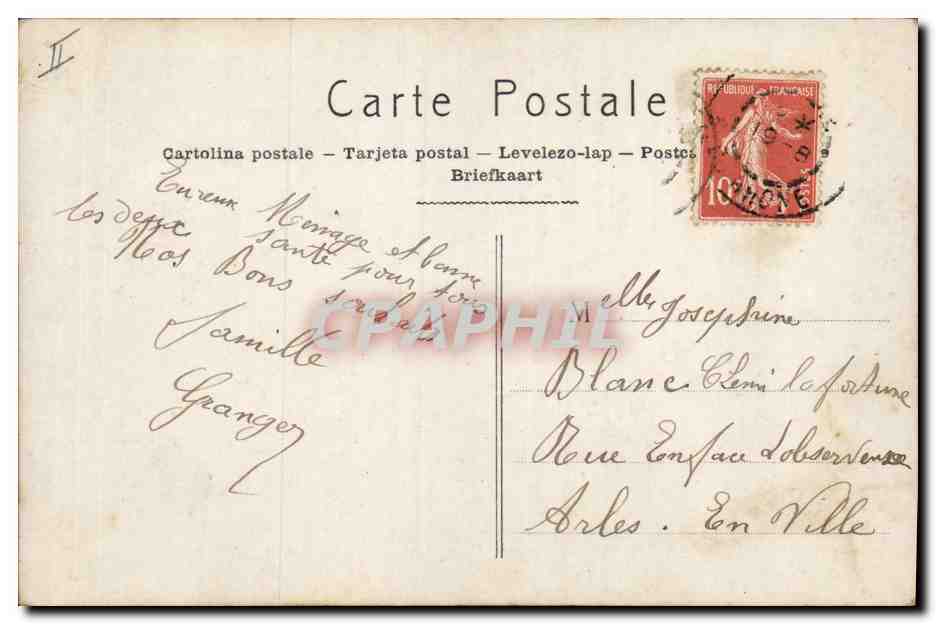 II
Carte Postale
Cartolina postale – Tarjeta postal – Levelezo-lap – Postca
Briefkaart
REPUBLIQUE FRANÇAISE
10
POSTES
RHONE
Eureux Menage et bonne
santé pour tous
les deux
Nos Bons souhaits
Famille
Granger
Melle Josephine
Blanc Chemi lafortune
Rue Enface L'observance
Arles. En Ville
CPAPHIL